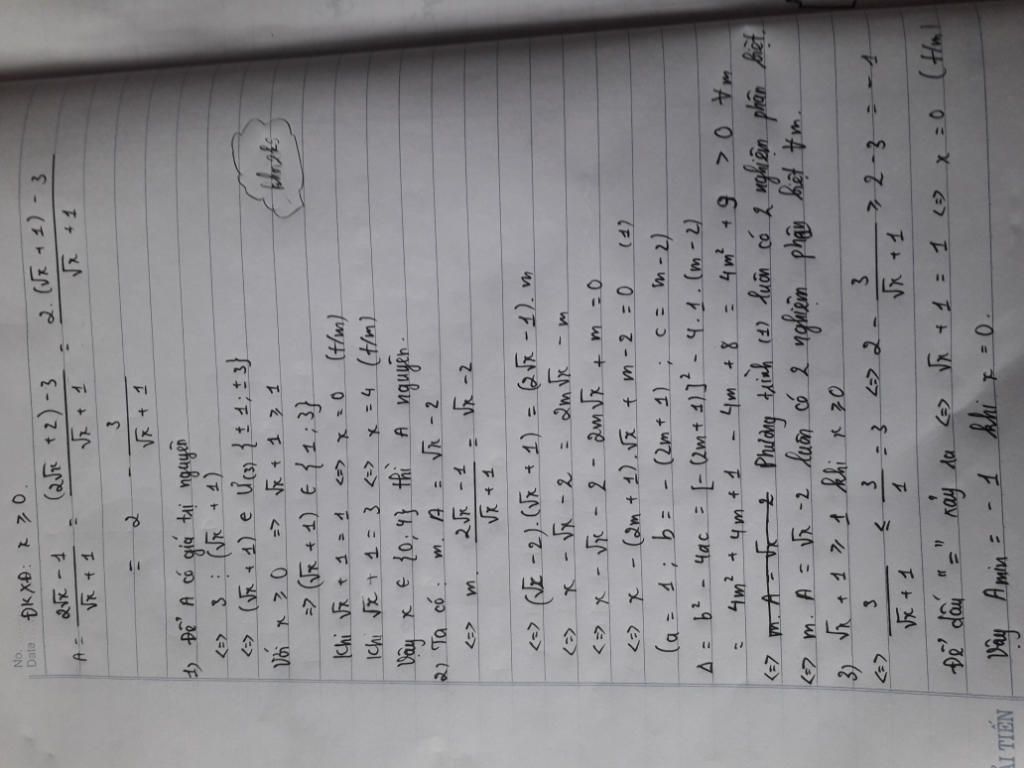 No.
Data
ĐKXĐ: x ≥ 0.
A = (2√x - 1)/(√x + 1) = ((2√x + 2) - 3)/(√x + 1) = (2.(√x + 1) - 3)/(√x + 1)
= 2 - 3/(√x + 1)
1) Để A có giá trị nguyên
<=> 3 ⋮ (√x + 1)
<=> (√x + 1) ∈ Ư(3) {±1; ±3}
Với x ≥ 0 => √x + 1 ≥ 1
=> (√x + 1) ∈ {1; 3}
Khi √x + 1 = 1 <=> x = 0 (t/m)
Khi √x + 1 = 3 <=> x = 4 (t/m)
Vậy x ∈ {0, 4} thì A nguyên.
2) Ta có: m. A = √x - 2
<=> m. (2√x - 1)/(√x + 1) = √x - 2
<=> (√x - 2).(√x + 1) = (2√x - 1). m
<=> x - √x - 2 = 2m√x - m
<=> x - √x - 2 - 2m√x + m = 0
<=> x - (2m + 1).√x + m - 2 = 0 (1)
(a = 1; b = - (2m + 1); c = m - 2)
Δ = b² - 4ac = [-(2m + 1)]² - 4.1.(m - 2)
= 4m² + 4m + 1 - 4m + 8 = 4m² + 9 > 0 ∀m
<=> m. A = √x - 2 Phương trình (1) luôn có 2 nghiệm phân biệt
<=> m. A = √x - 2 luôn có 2 nghiệm phân biệt ∀m.
3) √x + 1 ≥ 1 khi x ≥ 0
<=> 3/(√x + 1) ≤ 3/1 = 3 <=> 2 - 3/(√x + 1) ≥ 2 - 3 = - 1
Để dấu "=" xảy ra <=> √x + 1 = 1 <=> x = 0 (t/m)
Vậy Amin = - 1 khi x = 0.
ẢI TIẾN